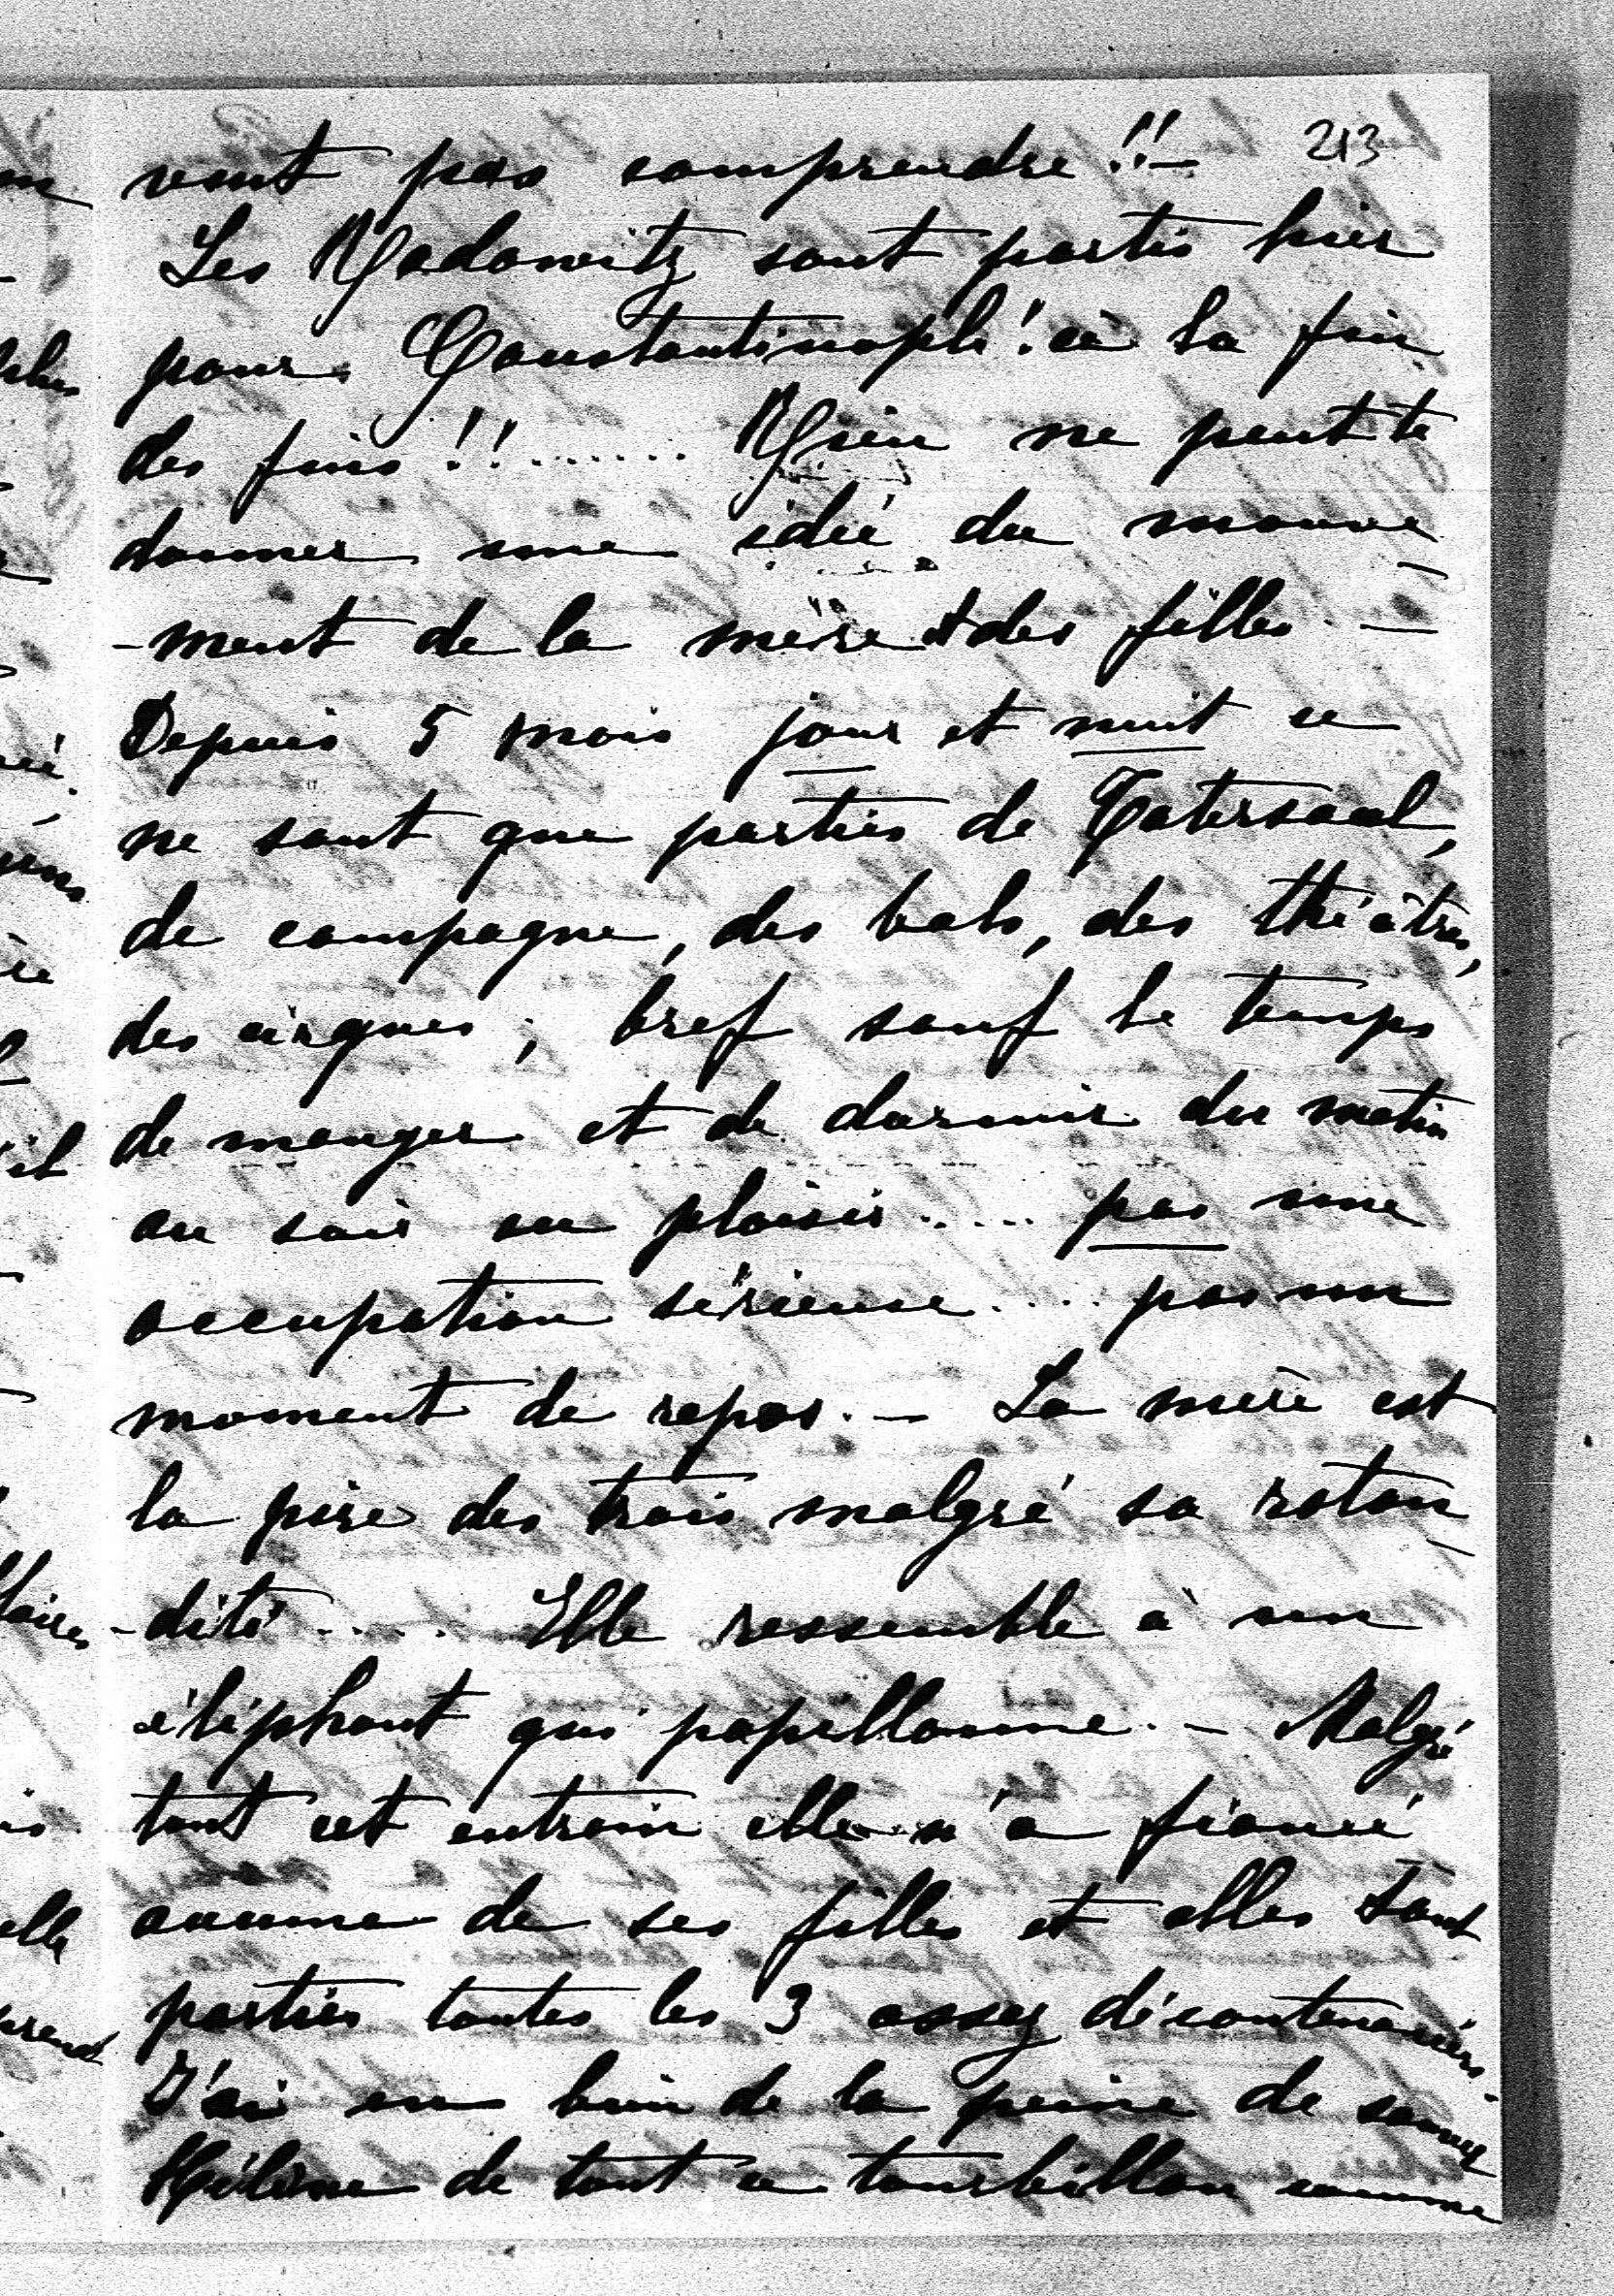 213
vont pas comprendre !! —
Les Radowitz sont partis hier
pour Constantinople ! à la fin
des fins !! ....... Rien ne peut te
donner une idée du mouve
-ment de la mère et des filles —
Depuis 5 mois jour et nuit ce
ne sont que parties de Tatersaal,
de campagne, des bals, des théâtres,
des cirques ; bref sauf le temps
de manger et de dormir du matin
au soir au plaisir ..... pas une
occupation sérieuse .... pas un
moment de repos. — La mère est
la pire des trois malgré sa roton
-dité ..... Elle ressemble à un
éléphant qui papillonne. — Malgré
tout cet entrain elle n'a fiancé
aucune de ses filles et elles sont
parties toutes les 3 assez décontenancées.
J'ai eu bien de la peine de sauver
Hélène de tout ce tourbillon comme